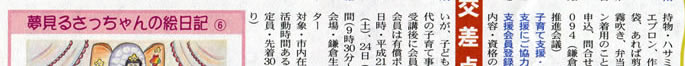 持物・ハサミ
エプロン、作
袋、あれば剪
霧吹き、弁当
ン着用のこと
申込、問合せ
0994（鎌倉
推進会議）
子育て支援・
支援にご協力
支援会員登録
内容・資格の
交差点
いが、子ども
代の子育て事
受講後に会員
会員は有償ボ
日時・平成21
（土）、24日（
間（9時30分～
会場・鎌倉生
ター
対象・市内在
活動時間ある
定員・先着30
り）
夢見るさっちゃんの絵日記 ⑥